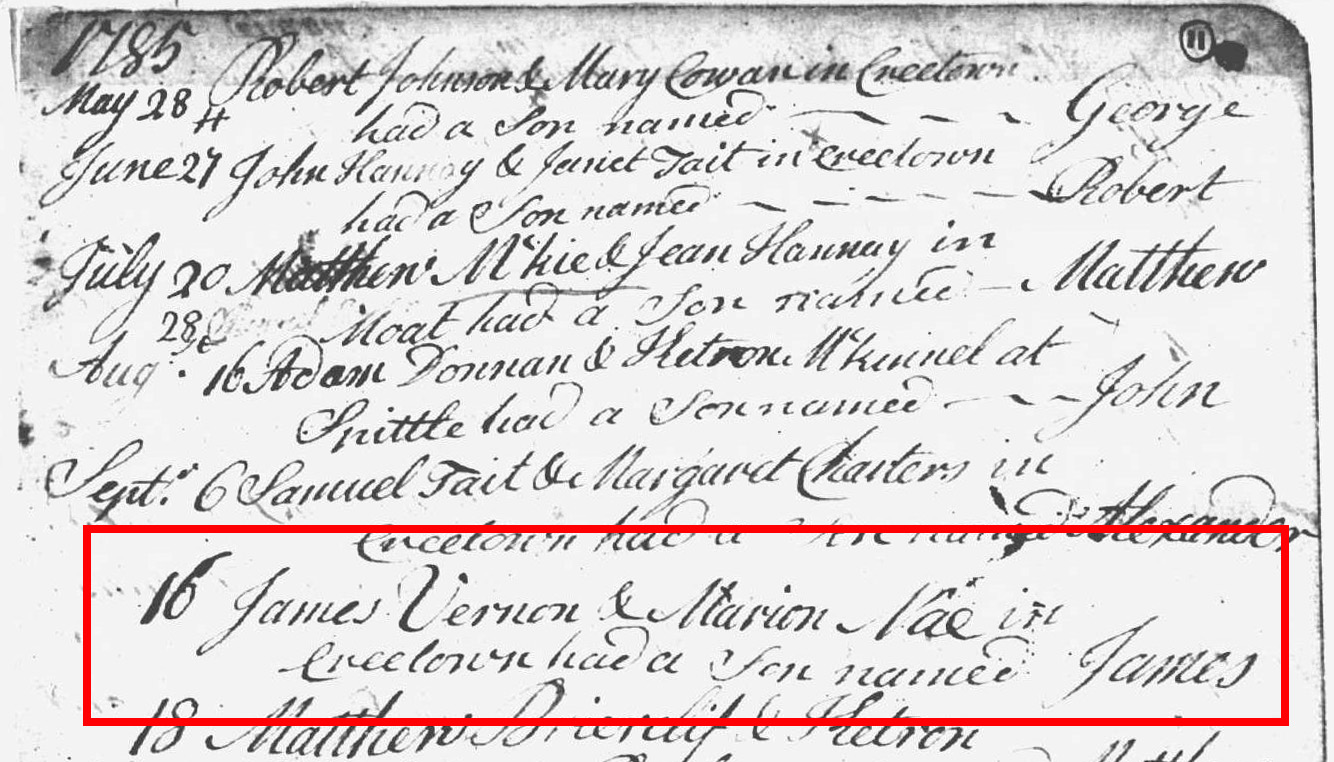 11
1785
May 28 Robert Johnson & Mary Cowan in Creetown
had a Son named George
June 27 John Hannay & Janet Tait in Creetown
had a Son named Robert
July 20 Matthew Mckie & Jean Hannay in
28 Moat had a Son named Matthew
Aug 16 Adam Donnan & Ketron Mckinnel at
Spittle had a Son named John
Septr 6 Samuel Tait & Margaret Charters in
Creetown had a Son named Alexander
16 James Vernon & Marion Nae in
Creetown had a Son named James
18 Matthew & Ketron